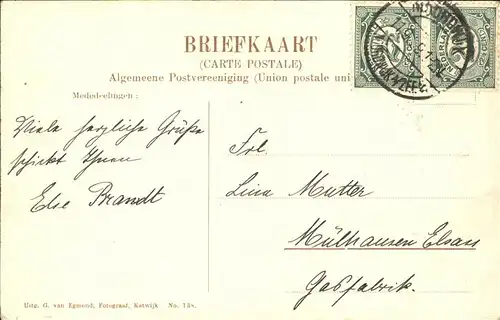 BRIEFKAART
(CARTE POSTALE)
Algemeene Postvereeniging (Union postale uni
Mededeelingen:
Viele herzliche Grüße
schickt Ihnen
Else Brandt
Frl.
Lina Mutter
Mülhausen Elsass
Gasfabrik.
Uitg. G. van Egmond, Fotograaf, Katwijk No. 13